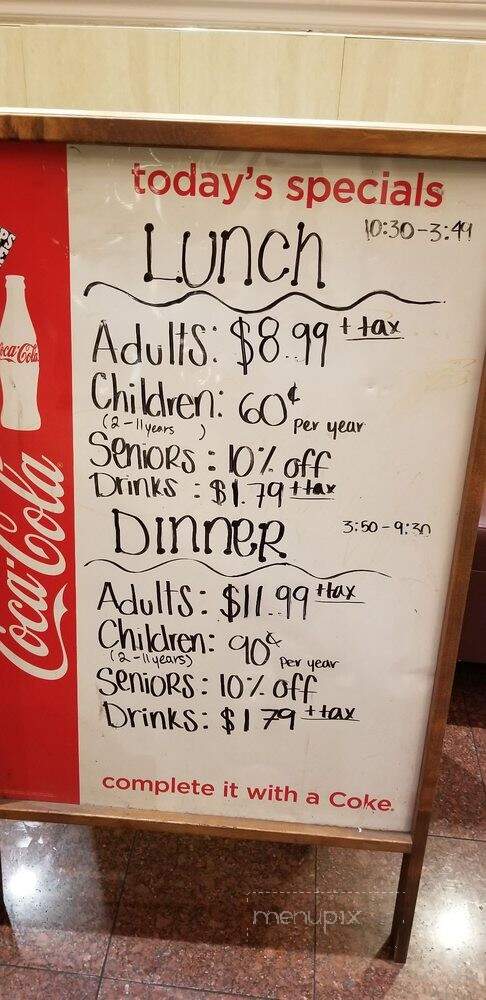 today's specials
Lunch 10:30-3:49
Adults: $8.99 + tax
Children: 60¢ per year
(2-11 years )
Seniors: 10% off
Drinks: $1.79 + tax
Dinner 3:50-9:30
Adults: $11.99 + tax
Children: 90¢ per year
(2-11 years)
Seniors: 10% off
Drinks: $1.79 + tax
complete it with a Coke.
Coca-Cola
Coca-Cola
menupix